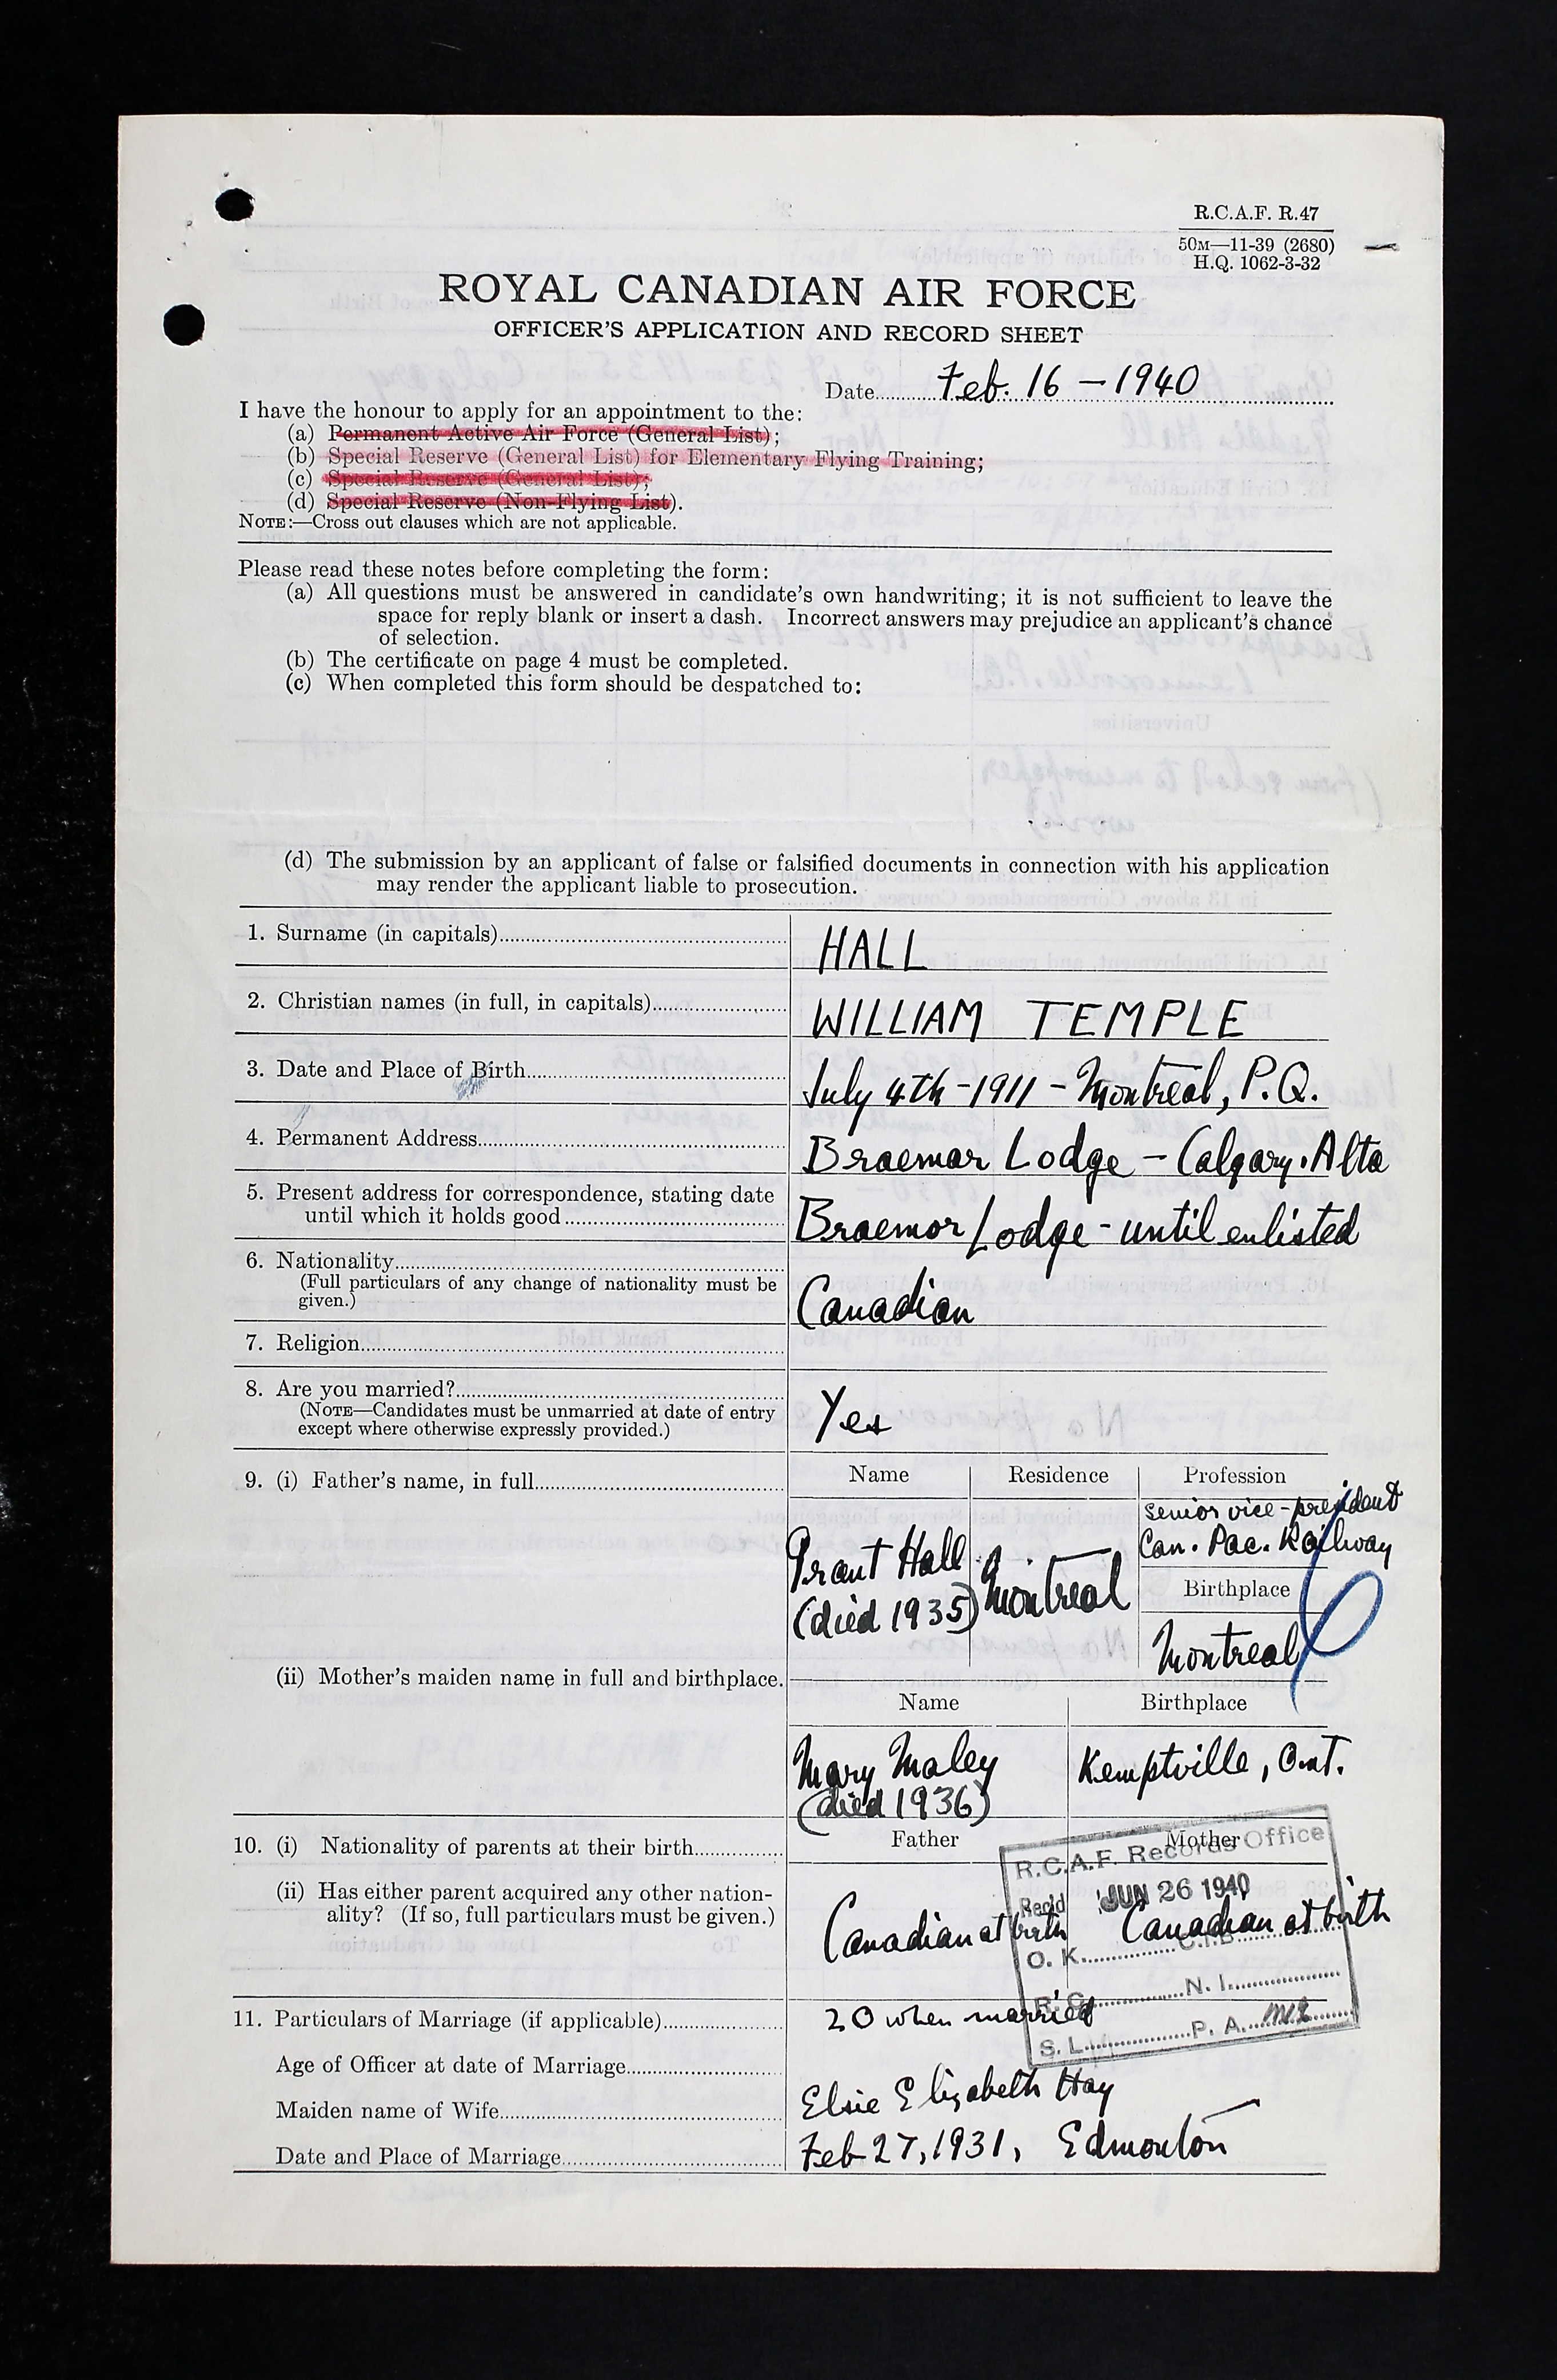 R.C.A.F. R.47
50M—11-39 (2680)
H.Q. 1062-3-32
ROYAL CANADIAN AIR FORCE
OFFICER'S APPLICATION AND RECORD SHEET
Date Feb. 16 - 1940
I have the honour to apply for an appointment to the:
(a) Permanent Active Air Force (General List);
(b) Special Reserve (General List) for Elementary Flying Training;
(c) Special Reserve (General List);
(d) Special Reserve (Non-Flying List).
NOTE:—Cross out clauses which are not applicable.
Please read these notes before completing the form:
(a) All questions must be answered in candidate's own handwriting; it is not sufficient to leave the
space for reply blank or insert a dash. Incorrect answers may prejudice an applicant's chance
of selection.
(b) The certificate on page 4 must be completed.
(c) When completed this form should be despatched to:
(d) The submission by an applicant of false or falsified documents in connection with his application
may render the applicant liable to prosecution.
1. Surname (in capitals) HALL
2. Christian names (in full, in capitals) WILLIAM TEMPLE
3. Date and Place of Birth July 4th - 1911 - Montreal, P.Q.
4. Permanent Address Braemar Lodge - Calgary. Alta
5. Present address for correspondence, stating date
until which it holds good Braemar Lodge - until enlisted
6. Nationality
(Full particulars of any change of nationality must be
given.) Canadian
7. Religion
8. Are you married?
(NOTE—Candidates must be unmarried at date of entry
except where otherwise expressly provided.) Yes
9. (i) Father's name, in full
Name Residence Profession
senior vice-president
Can. Pac. Railway
Grant Hall Montreal
(died 1935)
Birthplace
Montreal
(ii) Mother's maiden name in full and birthplace.
Name Birthplace
Mary Maley Kemptville, Ont.
(died 1936)
Father Mother
10. (i) Nationality of parents at their birth
(ii) Has either parent acquired any other nation-
ality? (If so, full particulars must be given.)
Canadian at birth Canadian at birth
R.C.A.F. Records Office
Rec'd JUN 26 1940
O. K. C.I.B.
R. C. N. I.
S. L. P. A.
11. Particulars of Marriage (if applicable) 20 when married
Age of Officer at date of Marriage
Maiden name of Wife Elsie Elizabeth Hay
Date and Place of Marriage Feb 27, 1931, Edmonton